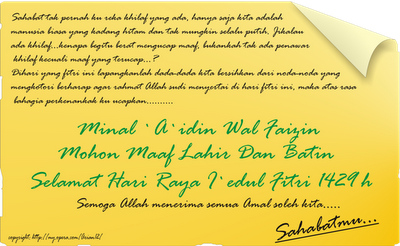 Sahabat tak pernah ku reka khilaf yang ada, hanya saja kita adalah
manusia biasa yang kadang hitam dan tak mungkin selalu putih, Jikalau
ada khilaf...kenapa begitu berat mengucap maaf, bukankah tak ada penawar
khilaf kecuali maaf yang terucap...?
Dihari yang fitri ini lapangkanlah dada-dada kita bersihkan dari noda-noda yang
mengkotori berharap agar rahmat Allah sudi menyertai di hari fitri ini, maka atas rasa
bahagia perkenankak ku ucapkan..........
Minal `A`idin Wal Faizin
Mohon Maaf Lahir Dan Batin
Selamat Hari Raya I`edul Fitri 1429 h
Semoga Allah menerima semua Amal soleh kita.....
Sahabatmu...
copyright: http://my.opera.com/